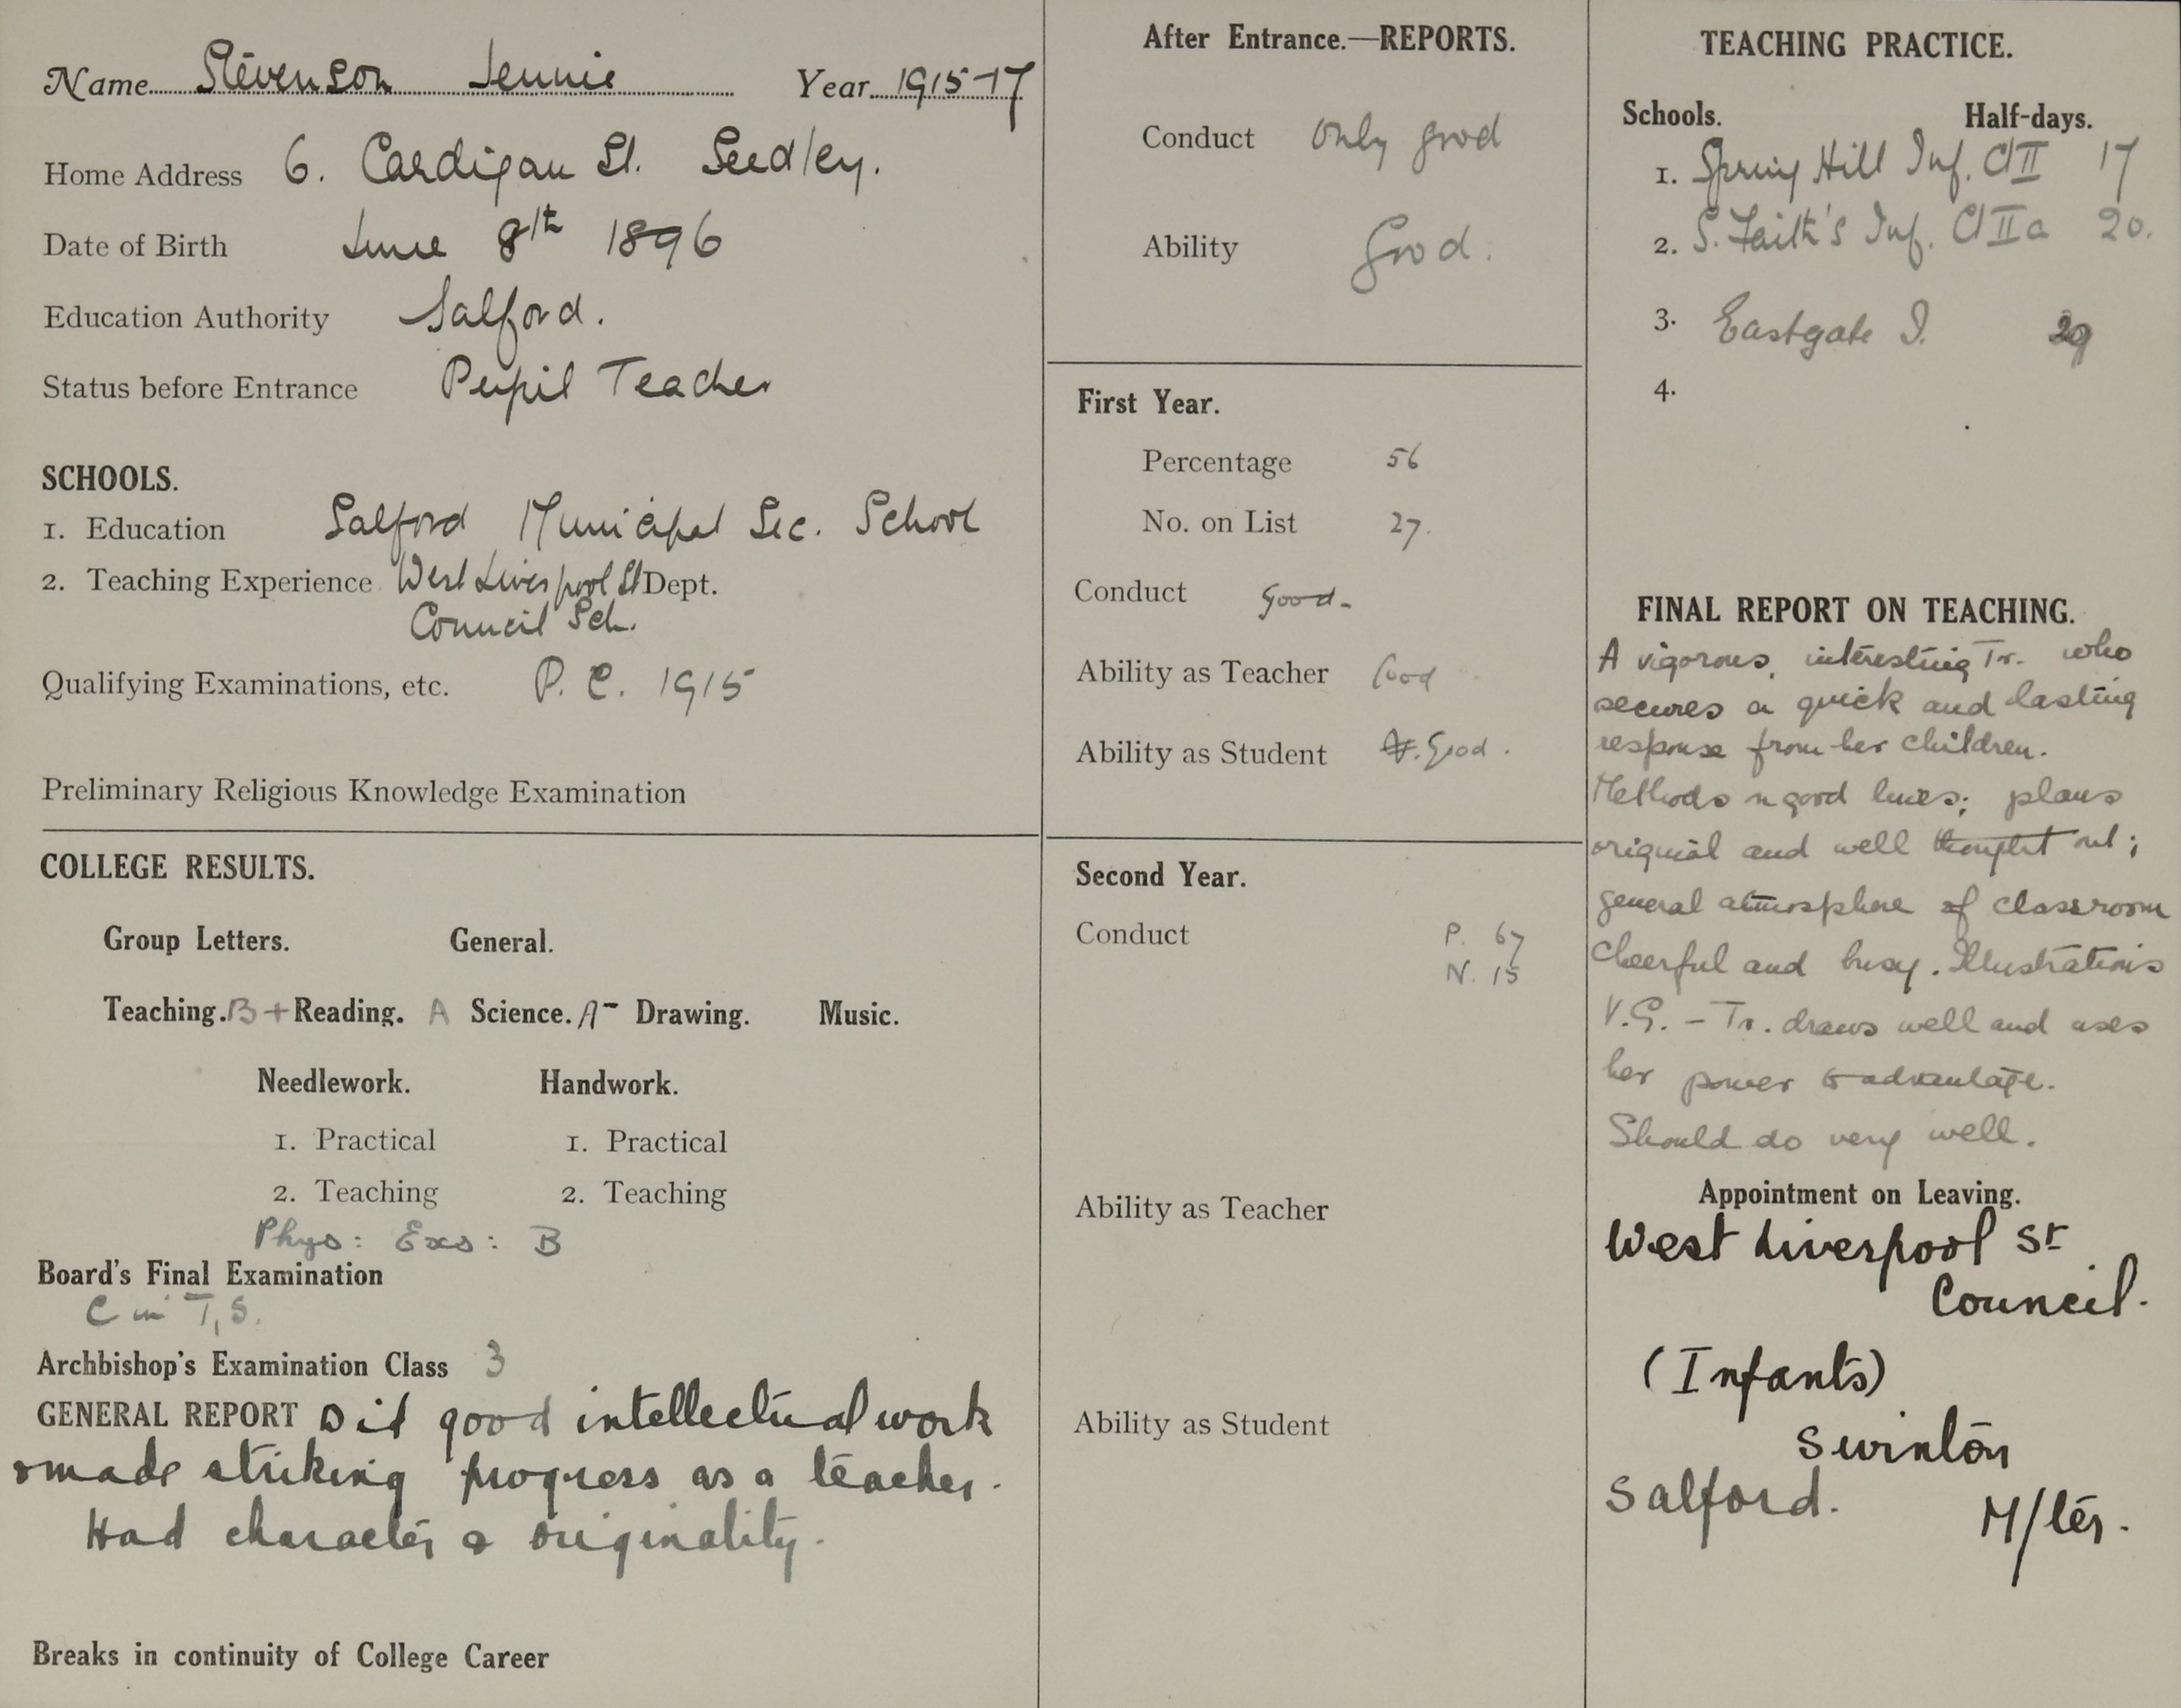 Name Stevenson Jennie Year 1915-17
Home Address 6. Cardigan St. Seedley.
Date of Birth June 8th 1896
Education Authority Salford.
Status before Entrance Pupil Teacher
SCHOOLS.
1. Education Salford Municipal Sec. School
2. Teaching Experience West Liverpool St Dept.
Council Sch.
Qualifying Examinations, etc. P. C. 1915
Preliminary Religious Knowledge Examination
COLLEGE RESULTS.
Group Letters. General.
Teaching. B+ Reading. A Science. A- Drawing. Music.
Needlework. Handwork.
1. Practical 1. Practical
2. Teaching 2. Teaching
Phys: Exs: B
Board's Final Examination
C in T, S.
Archbishop's Examination Class 3
GENERAL REPORT Did good intellectual work
& made striking progress as a teacher.
Had character & originality.
Breaks in continuity of College Career
After Entrance.—REPORTS.
Conduct Only good
Ability Good.
First Year.
Percentage 56
No. on List 27.
Conduct Good.
Ability as Teacher Good
Ability as Student Good.
Second Year.
Conduct P. 67
N. 15
Ability as Teacher
Ability as Student
TEACHING PRACTICE.
Schools. Half-days.
1. Spring Hill Inf. Cl II 17
2. S. Faith's Inf. Cl IIa 20.
3. Eastgate I.
4.
FINAL REPORT ON TEACHING.
A vigorous, interesting Tr. who
secures a quick and lasting
response from her children.
Methods on good lines; plans
original and well thought out;
general atmosphere of classroom
cheerful and busy. Illustrations
V.G. – Tr. draws well and uses
her power to advantage.
Should do very well.
Appointment on Leaving.
West Liverpool St
Council.
(Infants)
Swinton
Salford. M/ter.